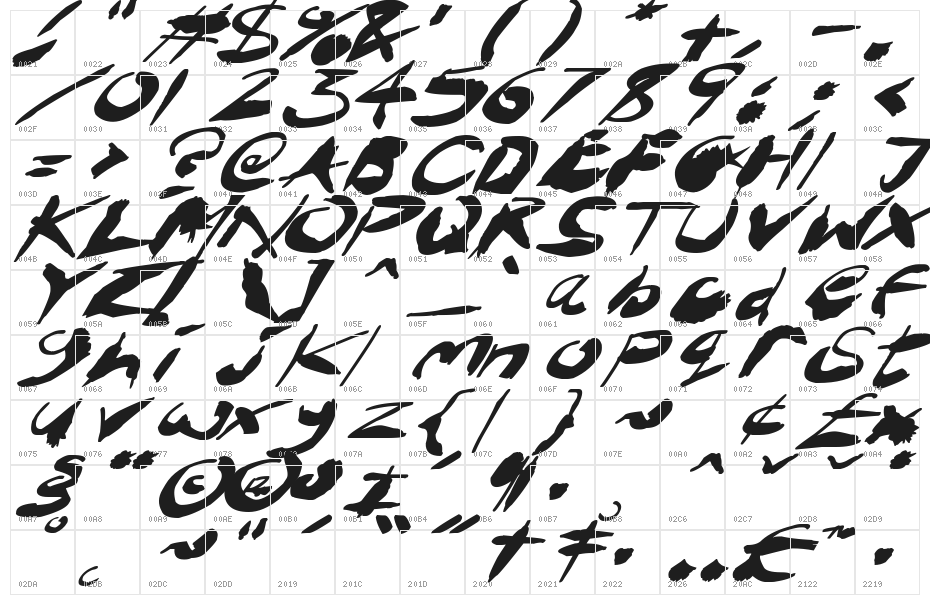 ! " # $ % & ' ( ) * + , - .
0021 0022 0023 0024 0025 0026 0027 0028 0029 002A 002B 002C 002D 002E
/ 0 1 2 3 4 5 6 7 8 9 : ; <
002F 0030 0031 0032 0033 0034 0035 0036 0037 0038 0039 003A 003B 003C
= > ? @ A B C D E F G H I J
003D 003E 003F 0040 0041 0042 0043 0044 0045 0046 0047 0048 0049 004A
K L M N O P Q R S T U V W X
004B 004C 004D 004E 004F 0050 0051 0052 0053 0054 0055 0056 0057 0058
Y Z [ \ ] ^ _ ` a b c d e f
0059 005A 005B 005C 005D 005E 005F 0060 0061 0062 0063 0064 0065 0066
g h i j k l m n o p q r s t
0067 0068 0069 006A 006B 006C 006D 006E 006F 0070 0071 0072 0073 0074
u v w x y z { | } ~ ¢ £ ¤
0075 0076 0077 0078 0079 007A 007B 007C 007D 007E 00A0 00A2 00A3 00A4
§ ¨ © ® ° ± ´ ¶ · ¸ ˆ ˇ ˘ ˙
00A7 00A8 00A9 00AE 00B0 00B1 00B4 00B6 00B7 00B8 02C6 02C7 02D8 02D9
˚ ˛ ˜ ˝ ’ “ ” † ‡ • … € ™ ∙
02DA 02DB 02DC 02DD 2019 201C 201D 2020 2021 2022 2026 20AC 2122 2219